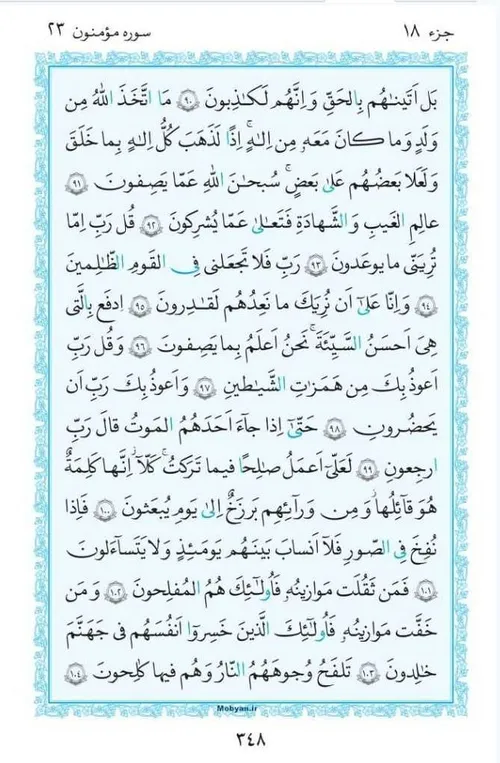 جزء ۱۸
سوره مؤمنون ۲۳
بَل اَتَينٰهُم بِالحَقِّ وَ اِنَّهُم لَكٰذِبونَ ﴿٩٠﴾ مَا اتَّخَذَ اللّٰهُ مِن
وَلَدٍ وَ ما كانَ مَعَهٗ مِن اِلٰهٍ ۚ اِذًا لَذَهَبَ كُلُّ اِلٰهٍ بِما خَلَقَ
وَ لَعَلا بَعضُهُم عَلىٰ بَعضٍ ۚ سُبحٰنَ اللّٰهِ عَمّا يَصِفونَ ﴿٩١﴾
عالِمِ الغَيبِ وَ الشَّهادَةِ فَتَعالىٰ عَمّا يُشرِكونَ ﴿٩٢﴾ قُل رَبِّ اِمّا
تُرِيَنّى ما يوعَدونَ ﴿٩٣﴾ رَبِّ فَلا تَجعَلنى فِى القَومِ الظّٰلِمينَ
﴿٩٤﴾ وَ اِنّا عَلىٰٓ اَن نُرِيَكَ ما نَعِدُهُم لَقٰدِرونَ ﴿٩٥﴾ اِدفَع بِالَّتى
هِىَ اَحسَنُ السَّيِّئَةَ ۚ نَحنُ اَعلَمُ بِما يَصِفونَ ﴿٩٦﴾ وَ قُل رَبِّ
اَعوذُ بِكَ مِن هَمَزٰتِ الشَّيٰطينِ ﴿٩٧﴾ وَ اَعوذُ بِكَ رَبِّ اَن
يَحضُرونِ ﴿٩٨﴾ حَتّىٰٓ اِذا جآءَ اَحَدَهُمُ المَوتُ قالَ رَبِّ
ارجِعونِ ﴿٩٩﴾ لَعَلّىٓ اَعمَلُ صٰلِحًا فيما تَرَكتُ ۚ كَلّا ۚ اِنَّها كَلِمَةٌ
هُوَ قآئِلُها ۖ وَ مِن وَرآئِهِم بَرزَخٌ اِلىٰ يَومِ يُبعَثونَ ﴿١٠٠﴾ فَاِذا
نُفِخَ فِى الصّورِ فَلآ اَنسابَ بَينَهُم يَومَئِذٍ وَ لا يَتَسآءَلونَ
﴿١٠١﴾ فَمَن ثَقُلَت مَوازينُهٗ فَاُولٰٓئِكَ هُمُ المُفلِحونَ ﴿١٠٢﴾ وَ مَن
خَفَّت مَوازينُهٗ فَاُولٰٓئِكَ الَّذينَ خَسِروٓا اَنفُسَهُم فى جَهَنَّمَ
خٰلِدونَ ﴿١٠٣﴾ تَلفَحُ وُجوهَهُمُ النّارُ وَ هُم فيها كٰلِحونَ ﴿١٠٤﴾
Mobyan.ir
٣٤٨